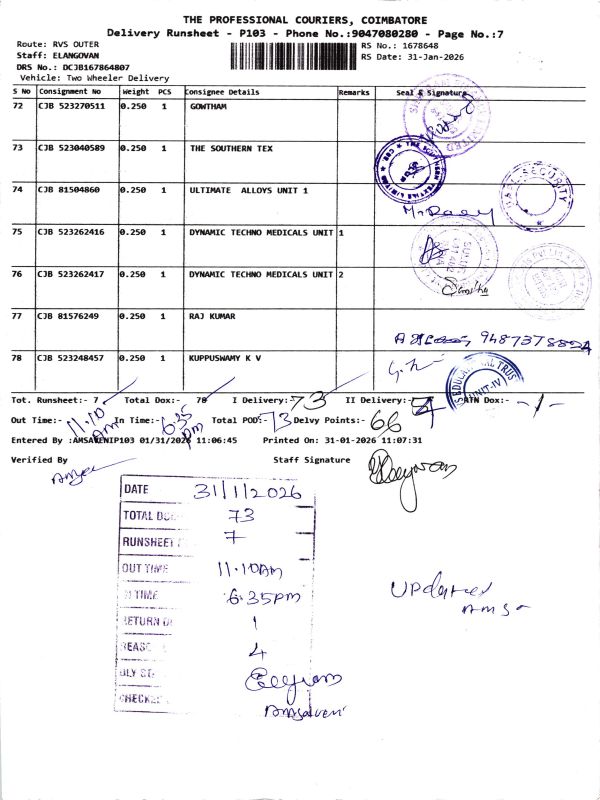 THE PROFESSIONAL COURIERS, COIMBATORE
Delivery Runsheet - P103 - Phone No.:9047080280 - Page No.:7
Route: RVS OUTER
RS No.: 1678648
Staff: ELANGOVAN
RS Date: 31-Jan-2026
DRS No.: DCJB167864807
Vehicle: Two Wheeler Delivery
S No Consignment No Weight PCS Consignee Details Remarks Seal & Signature
72 CJB 523270511 0.250 1 GOWTHAM
73 CJB 523040589 0.250 1 THE SOUTHERN TEX
74 CJB 81504860 0.250 1 ULTIMATE ALLOYS UNIT 1
SECURITY
75 CJB 523262416 0.250 1 DYNAMIC TECHNO MEDICALS UNIT 1
76 CJB 523262417 0.250 1 DYNAMIC TECHNO MEDICALS UNIT 2
77 CJB 81576249 0.250 1 RAJ KUMAR
78 CJB 523248457 0.250 1 KUPPUSWAMY K V
EDUCATIONAL TRUST
UNIT-IV
Tot. Runsheet:- 7 Total Dox:- 78 I Delivery:- 73 II Delivery:- Dox:- -1-
Out Time:- 11.10 AM In Time:- 6.35 PM Total POD:- 73 Delvy Points:- 66
Entered By :AMSAVENIP103 01/31/2026 11:06:45 Printed On: 31-01-2026 11:07:31
Verified By Staff Signature
DATE 31/1/2026
TOTAL 73
RUNSHEET 7
OUT TIME 11.10AM
TIME 6.35PM
RETURN 1
4
CHECKED Amsaveni
Updated